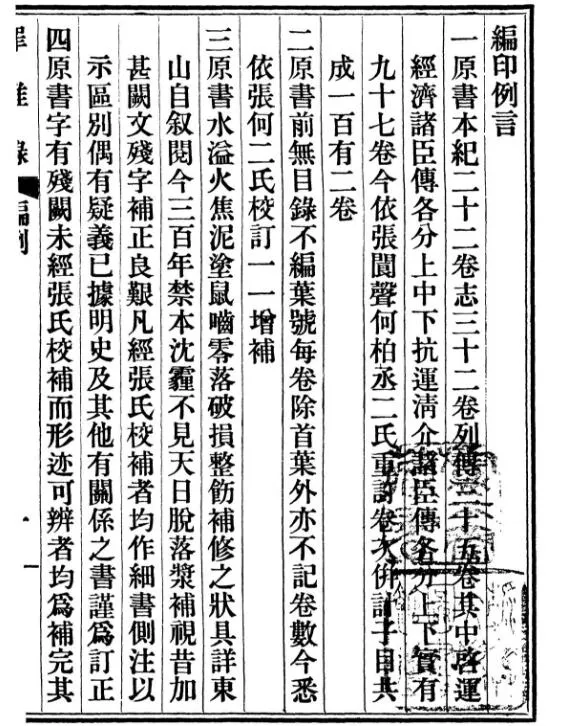 編印例言
一原書本紀二十二卷志三十二卷列傳三十五卷其中啓運
經濟諸臣傳各分上中下抗運淸介諸臣傳各分上下實有
九十七卷今依張閬聲何柏丞二氏重訂卷次併計子目共
成一百有二卷
二原書前無目錄不編葉號每卷除首葉外亦不記卷數今悉
依張何二氏校訂一一增補
三原書水溢火焦泥塗鼠嚙零落破損整飭補修之狀具詳東
山自叙閱今三百年禁本沈霾不見天日脫落漿補視昔加
甚闕文殘字補正良艱凡經張氏校補者均作細書側注以
示區別偶有疑義已據明史及其他有關係之書謹爲訂正
四原書字有殘闕未經張氏校補而形迹可辨者均爲補完其
罪惟錄 編例 一